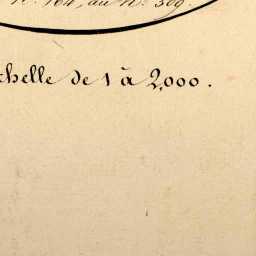 N.° 164, au N.° 309.
chelle de 1 à 2,000.